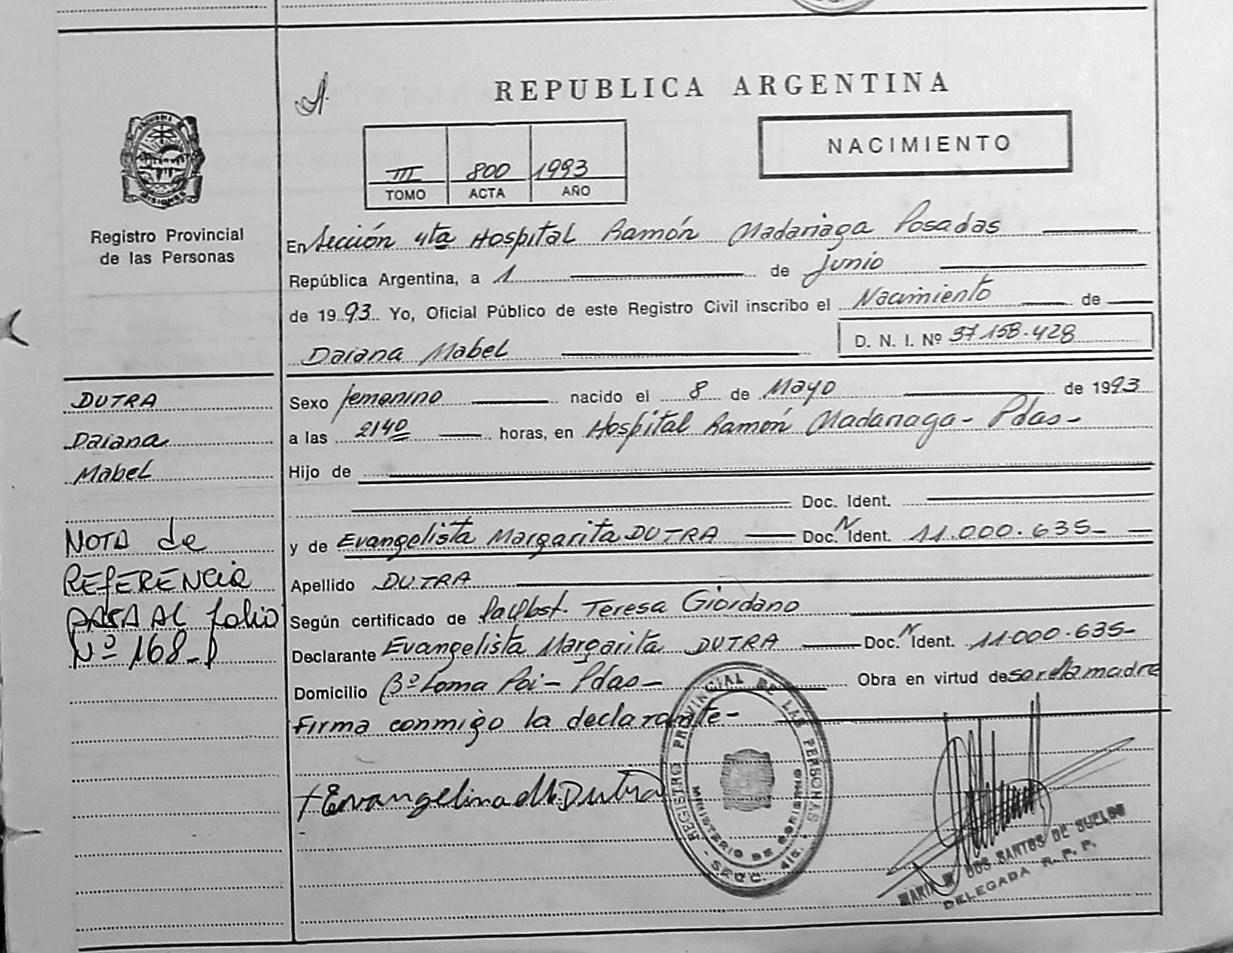 REPUBLICA ARGENTINA
NACIMIENTO
III 800 1993
TOMO ACTA AÑO
Registro Provincial
de las Personas
En Sección 4ta Hospital Ramón Madariaga Posadas
República Argentina, a 1 de Junio
de 1993 Yo, Oficial Público de este Registro Civil inscribo el Nacimiento de
Daiana Mabel D. N. I. Nº 37.158.428
DUTRA
Daiana
Mabel
Sexo femenino nacido el 8 de Mayo de 1993
a las 2140 horas, en Hospital Ramón Madariaga - Pdas -
Hijo de
Doc. Ident.
y de Evangelista Margarita DUTRA Doc. N Ident. 11.000.635-
Apellido DUTRA
Según certificado de Teresa Giordano
Declarante Evangelista Margarita DUTRA Doc. N Ident. 11.000.635-
Domicilio Bº Loma Poi - Pdas - Obra en virtud de ser la madre
firma conmigo la declarante -
NOTA de
REFERENCIA
PASA AL folio
Nº 168
Evangelina M. Dutra
REGISTRO PROVINCIAL DE LAS PERSONAS
MINISTERIO DE GOBIERNO
- SECC. 4ta. -
DOS SANTOS DE SUELDO
DELEGADA R. P. P.